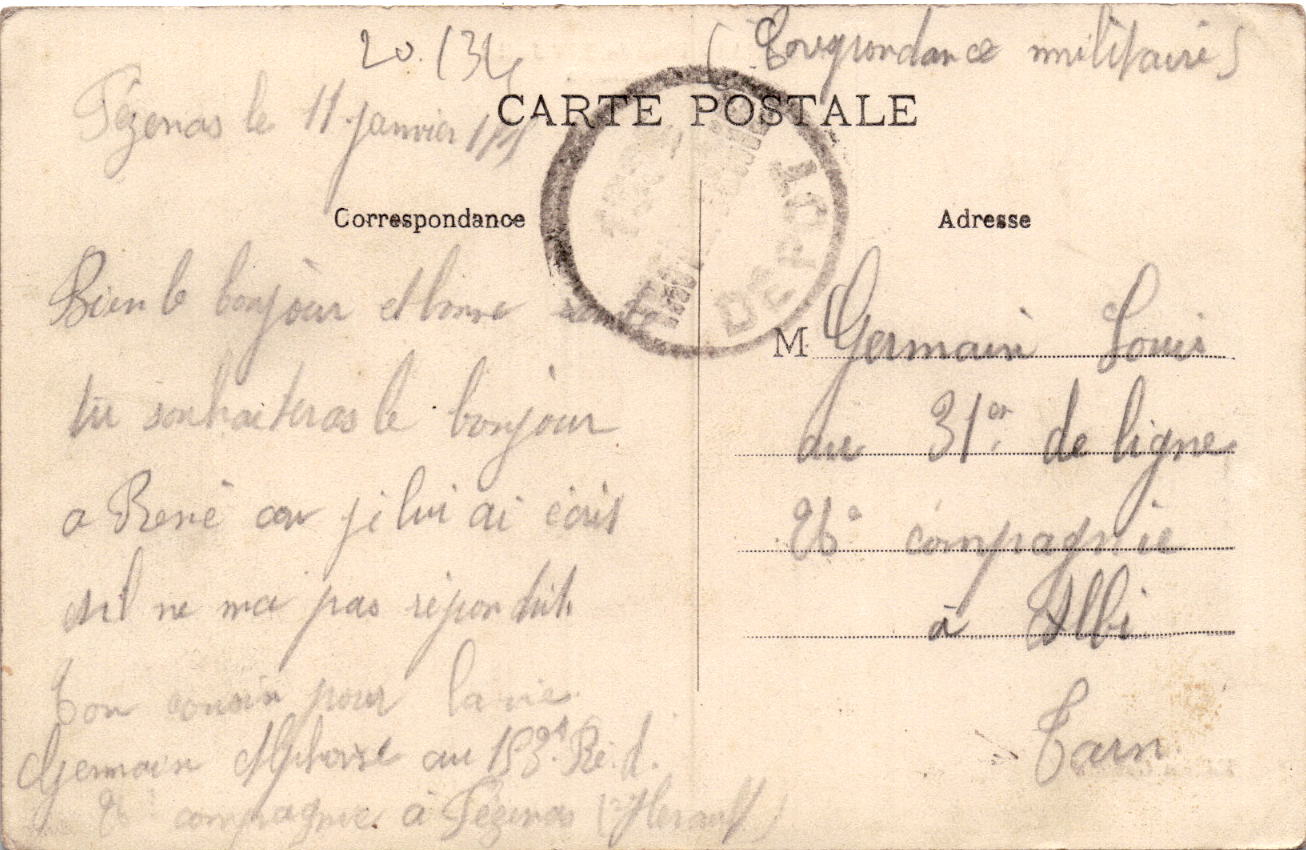 20.134
(Correspondance militaire)
Pézenas le 11 janvier
CARTE POSTALE
10
DÉP
Correspondance
Adresse
Bien le bonjour et bonne santé
tu souhaiteras le bonjour
a René car je lui ai écrit
et il ne ma pas répondut
Ton cousin pour la vie
Germain Alphonse au
compagnie à Pézenas (Herault)
M Germain Louis
au 31er de ligne
compagnie
à Albi
Tarn